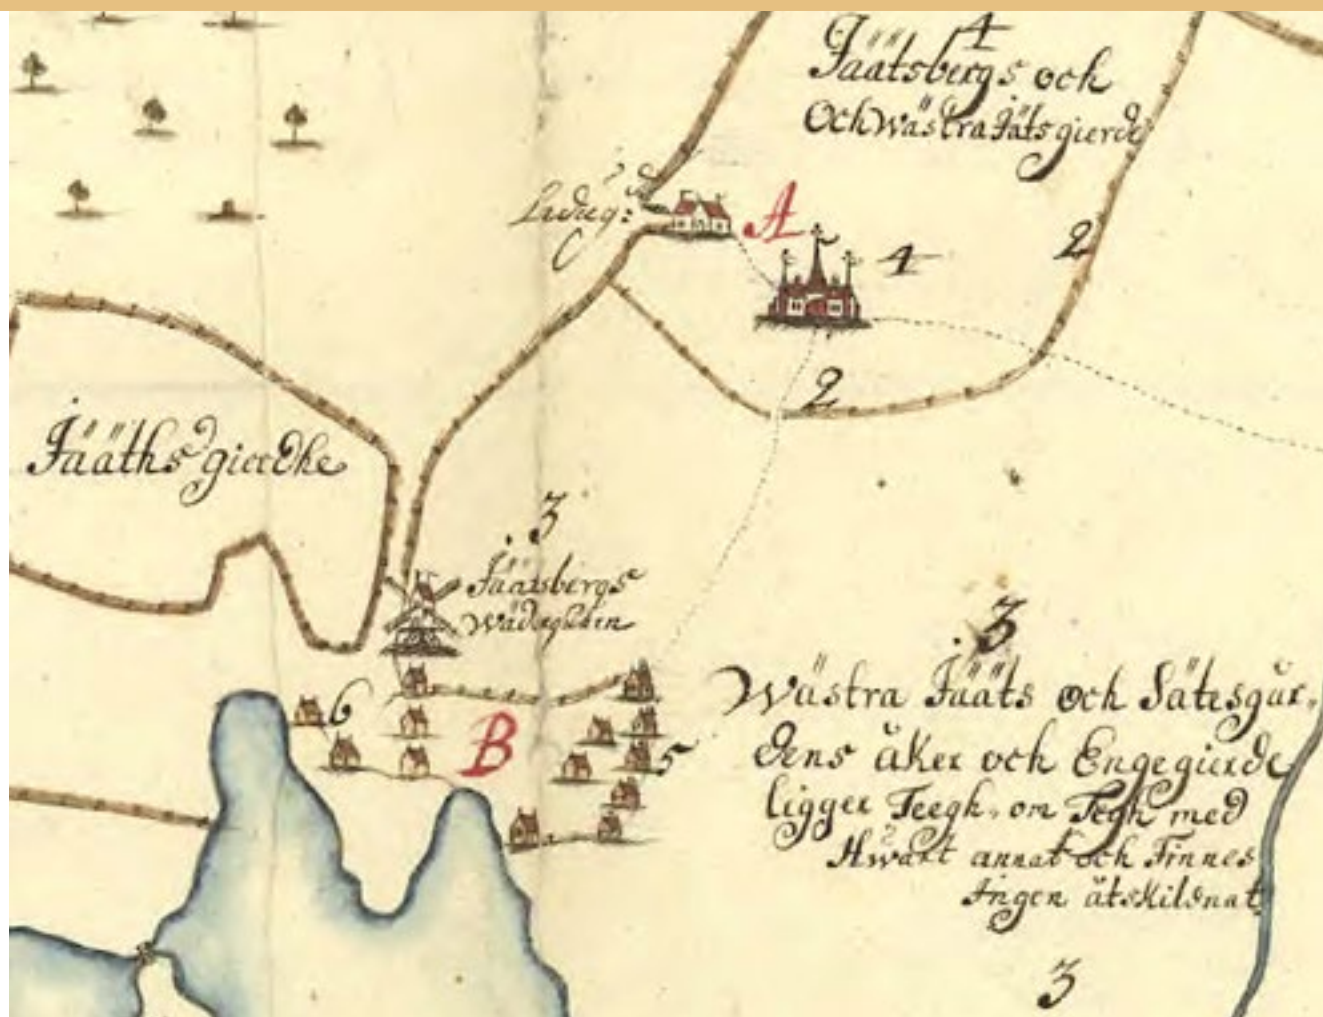 4
Jäätsbergs och
Och Wästra Jäts gierde
A
4
2
2
Jääths gierdhe
3
Jäätsbergs
3
6
B
5
Wästra Jääts och Sätesgår,
dens åker och Engegierde
ligger Teegh om Tegh med
Hwart annat och Finnes
Ingen åtskilsnat
3